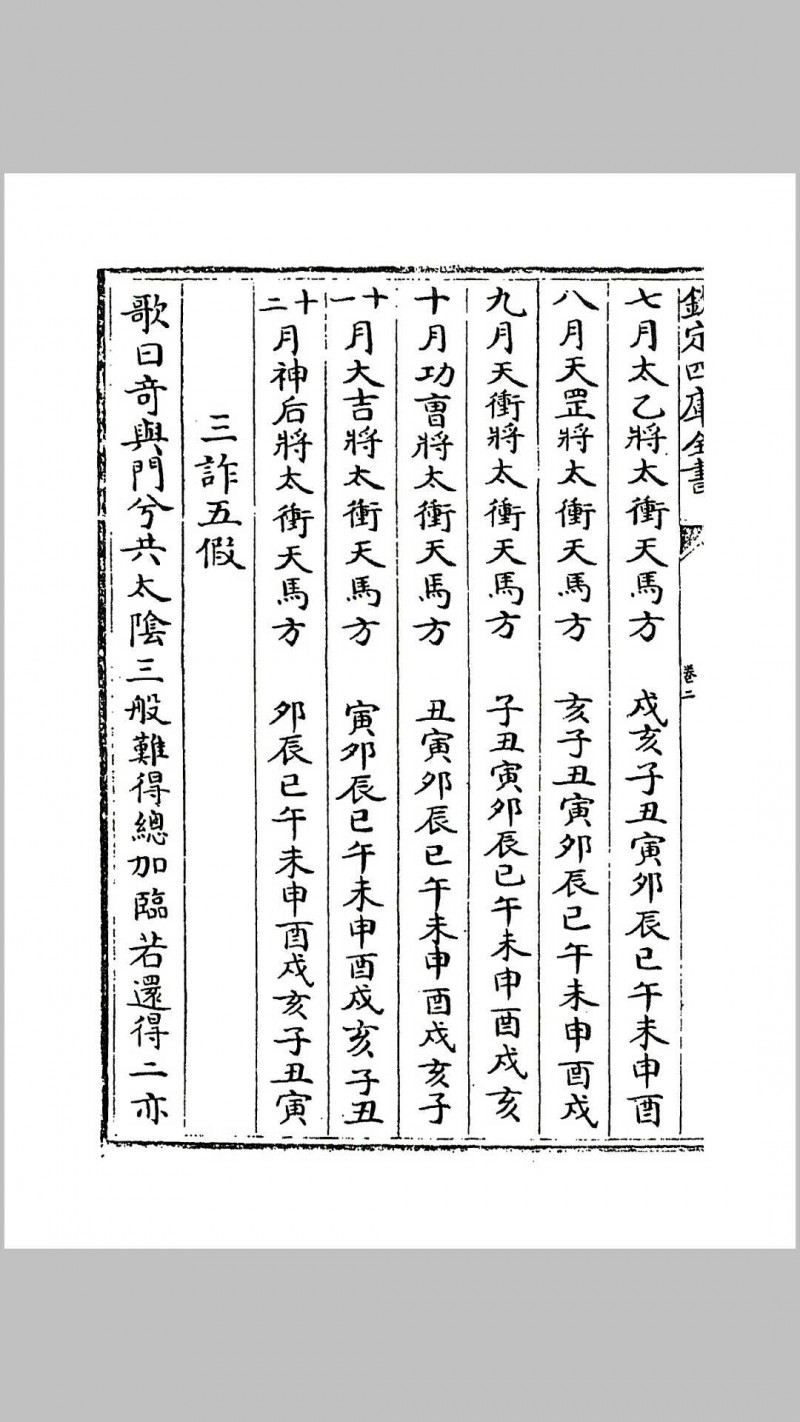 欽定四庫全書
卷二
七月太乙將太衝天馬方 戌亥子丑寅卯辰巳午未申酉
八月天罡將太衝天馬方 亥子丑寅卯辰巳午未申酉戌
九月天衝將太衝天馬方 子丑寅卯辰巳午未申酉戌亥
十月功曹將太衝天馬方 丑寅卯辰巳午未申酉戌亥子
十一月大吉將太衝天馬方 寅卯辰巳午未申酉戌亥子丑
十二月神后將太衝天馬方 卯辰巳午未申酉戌亥子丑寅
三詐五假
歌曰奇與門兮共太陰三般難得總加臨若還得二亦